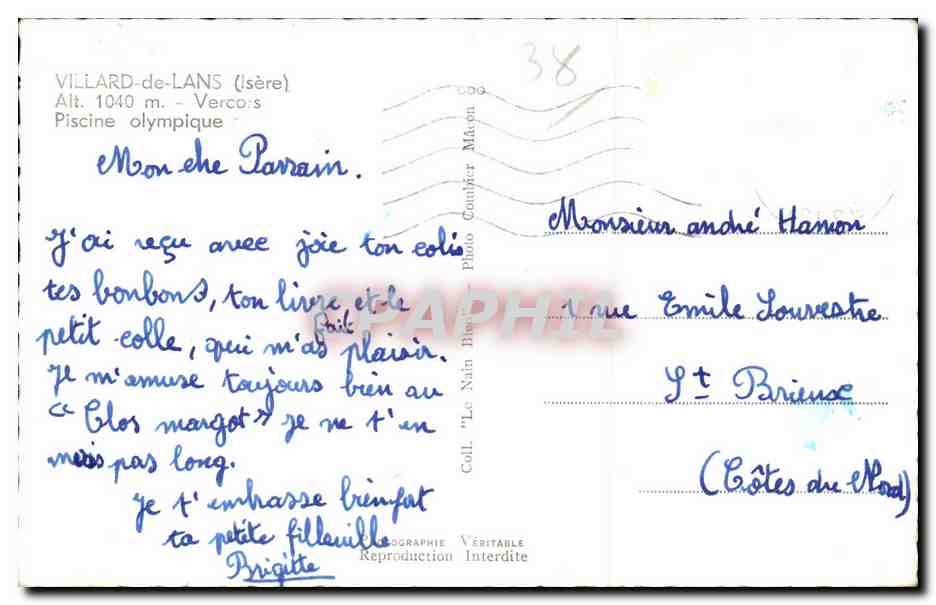 38
VILLARD-de-LANS (Isère)
Alt. 1040 m. - Vercors
Piscine olympique
Mon che Parrain.
J'ai reçu avec joie ton colis
tes bonbons, ton livre et le
petit colle, qui m'as fait plaisir.
Je m'amuse toujours bien au
"Clos margot" je ne t'en
mais pas long.
Je t'embrasse bienfort
ta petite filleuille
Brigitte
Coll. "Le Nain Bleu" - Photo Combier Mâcon
PHOTOGRAPHIE VÉRITABLE
Reproduction Interdite
Monsieur andré Hamon
1 rue Emile Souvestre
St Brieuc
(Côtes du Nord)
CPAPHIL